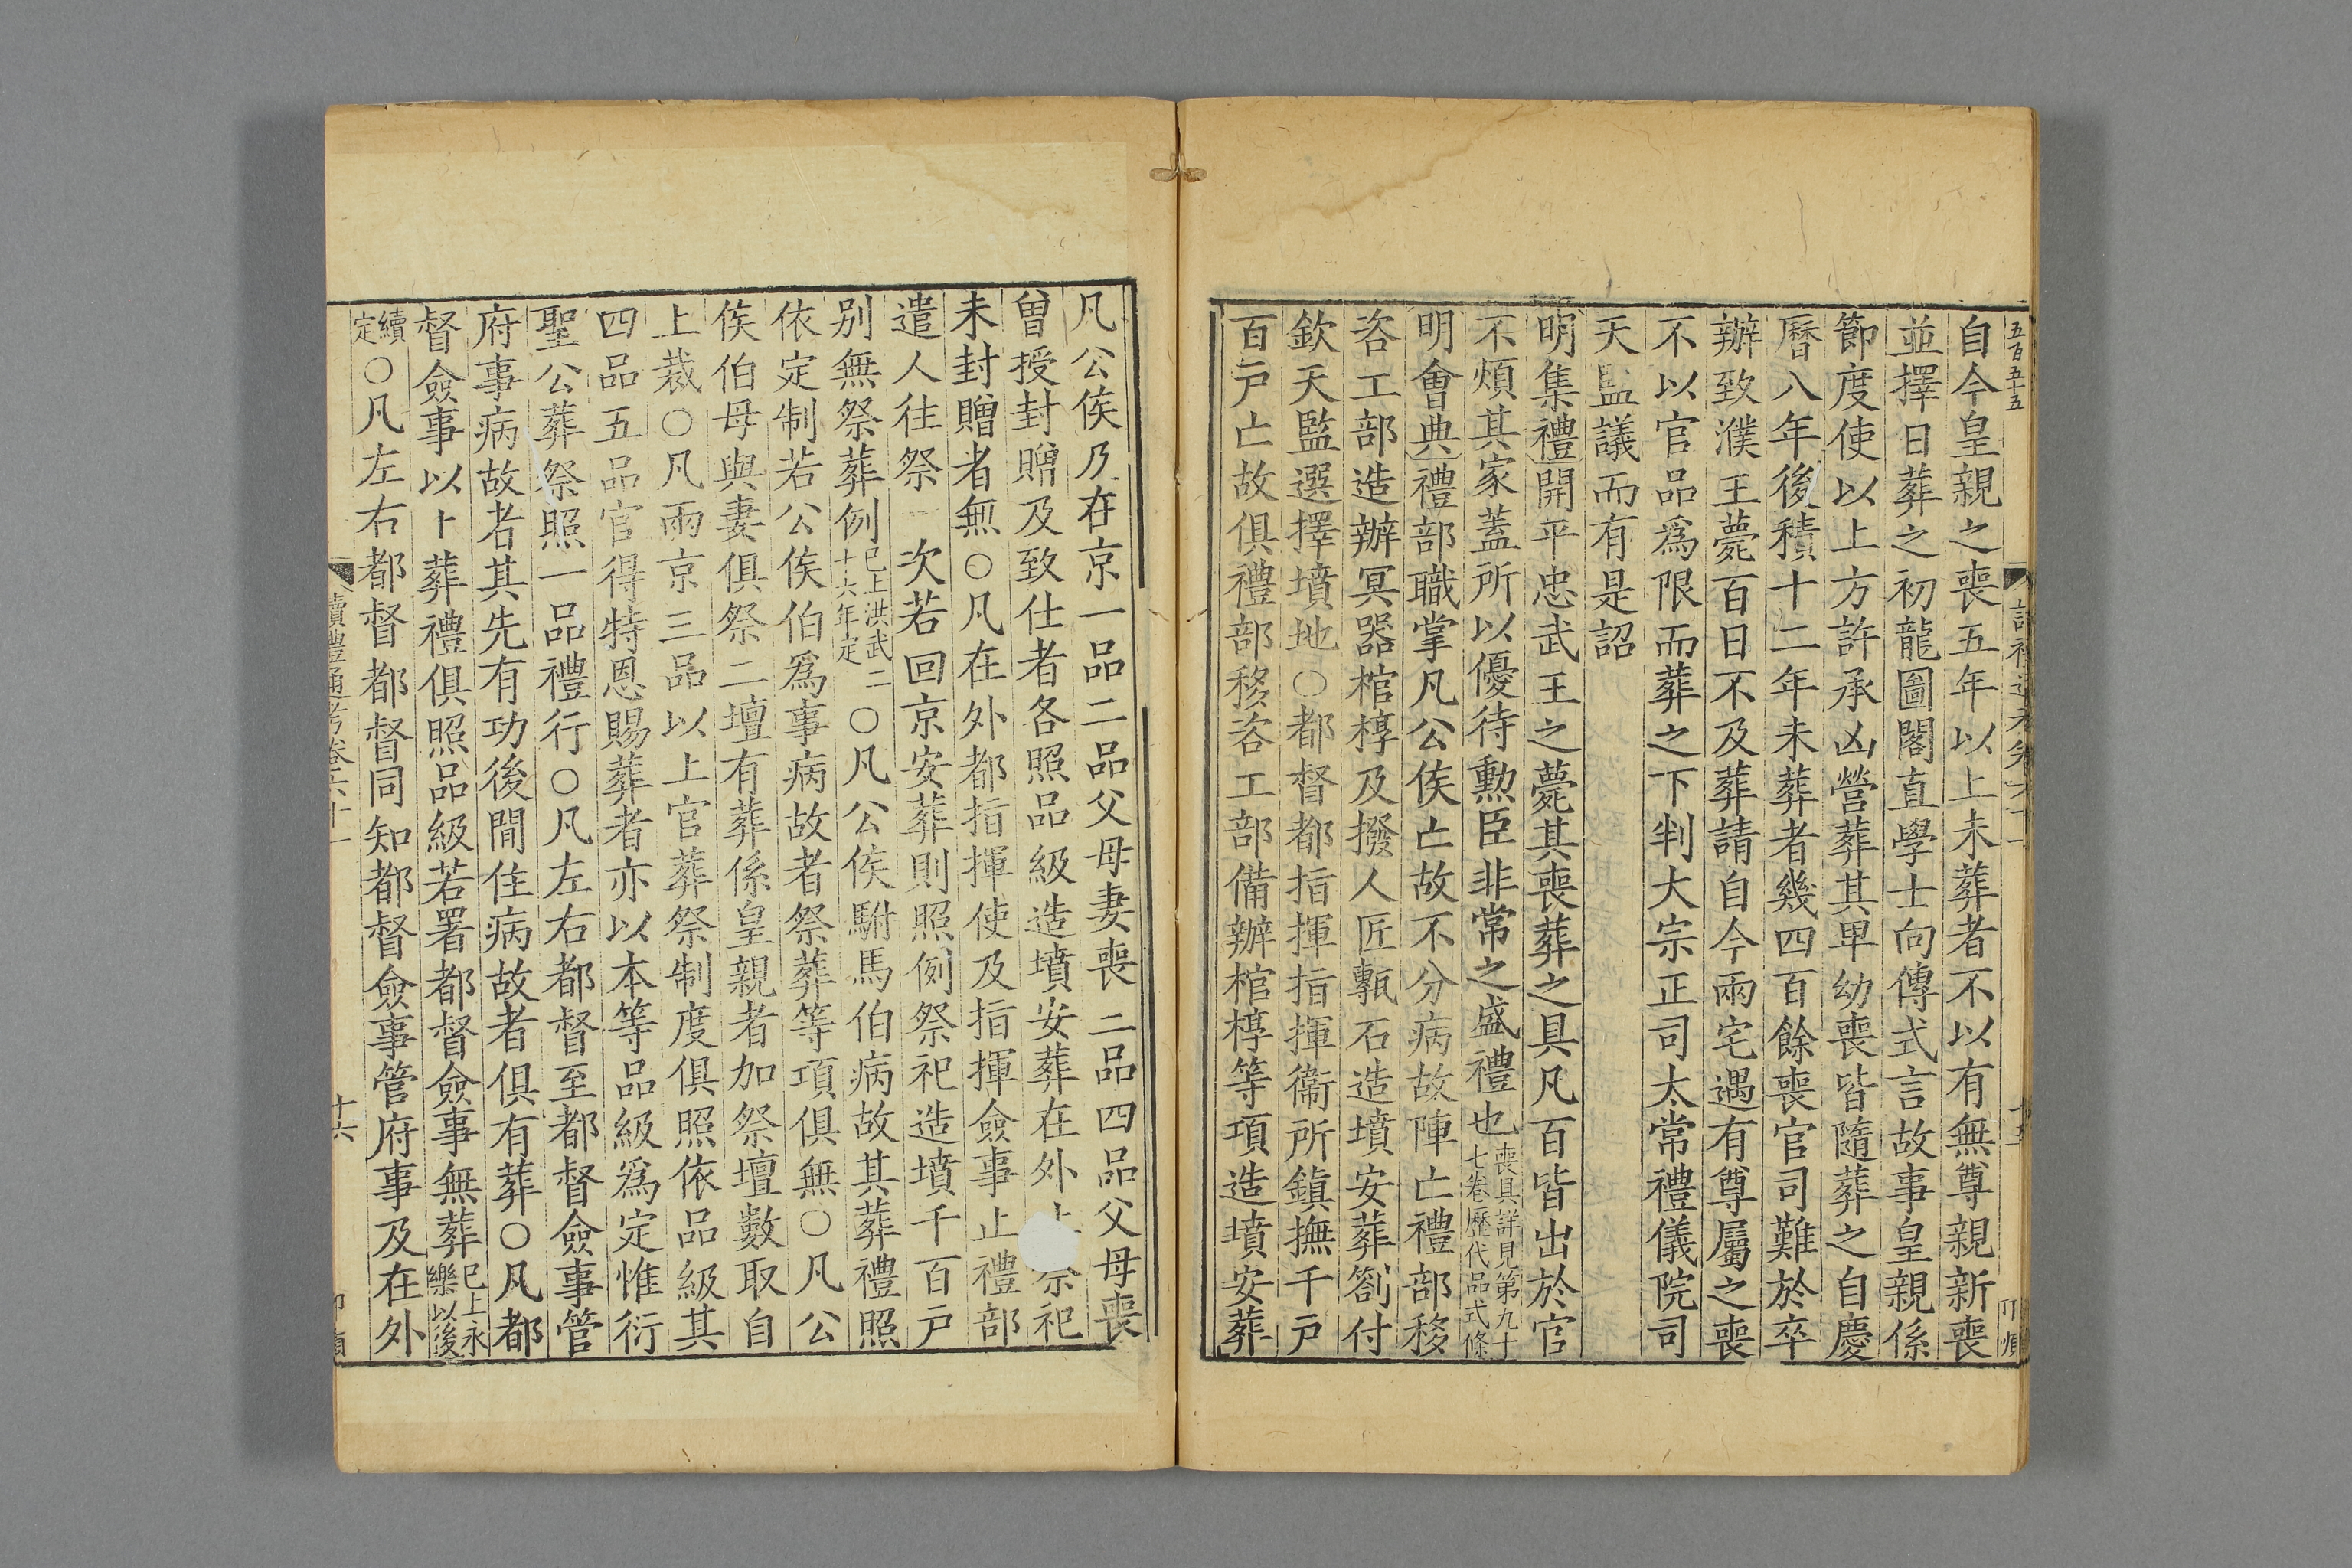 五百五十五
自今皇親之喪五年以上未葬者不以有無尊親新喪
並擇日葬之初龍圖閣直學士向傳式言故事皇親係
節度使以上方許承凶營葬其卑幼喪皆隨葬之自慶
曆八年後積十二年未葬者幾四百餘喪官司難於卒
辦致濮王薨百日不及葬請自今兩宅遇有尊屬之喪
不以官品爲限而葬之下判大宗正司太常禮儀院司
天監議而有是詔
明集禮開平忠武王之薨其喪葬之具凡百皆出於官
不煩其家蓋所以優待勲臣非常之盛禮也喪具詳見第九十
七卷歷代品式條
明會典禮部職掌凡公侯亡故不分病故陣亡禮部移
咨工部造辦冥器棺椁及撥人匠甎石造墳安葬劄付
欽天監選擇墳地○都督都指揮指揮衞所鎮撫千戸
百戸亡故俱禮部移咨工部備辦棺椁等項造墳安葬
凡公侯乃在京一品二品父母妻喪二品四品父母喪
曾授封贈及致仕者各照品級造墳安葬在外祭祀
未封贈者無○凡在外都指揮使及指揮僉事止禮部
遣人往祭一次若回京安葬則照例祭祀造墳千百戸
别無祭葬例已上洪武二
十六年定○凡公侯駙馬伯病故其葬禮照
依定制若公侯伯爲事病故者祭葬等項俱無○凡公
侯伯母與妻俱祭二壇有葬係皇親者加祭壇數取自
上裁○凡兩京三品以上官葬祭制度俱照依品級其
四品五品官得特恩賜葬者亦以本等品級爲定惟衍
聖公葬祭照一品禮行○凡左右都督至都督僉事管
府事病故者其先有功後閒住病故者俱有葬○凡都
督僉事以上葬禮俱照品級若署都督僉事無葬已上永
樂以後
續
定○凡左右都督都督同知都督僉事管府事及在外
讀禮通考卷六十一
十六